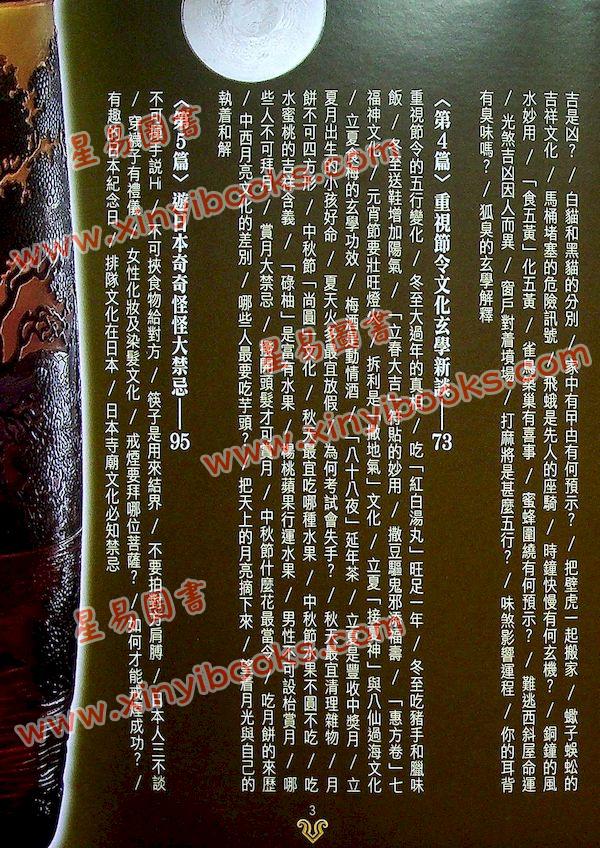 吉是凶? / 白貓和黑貓的分別 / 家中有曱甴有何預示? / 把壁虎一起搬家 / 蠍子蜈蚣的
吉祥文化 / 馬桶堵塞的危險訊號 / 飛蛾是先人的座騎 / 時鐘快慢有何玄機? / 銅鐘的風
水妙用 / 「食五黃」化五黃 / 雀鳥築巢有喜事 / 蜜蜂圍繞有何預示? / 難逃西斜屋命運
/ 光煞吉凶因人而異 / 窗戶對着墳場 / 打麻將是甚麼五行? / 味煞影響運程 / 你的耳背
有臭味嗎? / 狐臭的玄學解釋
〈第4篇〉重視節令文化玄學新談——73
重視節令的五行變化 / 冬至大過年的真相 / 吃「紅白湯丸」旺足一年 / 冬至吃豬手和臘味
飯 / 冬至送鞋增加陽氣 / 「立春大吉」符貼的妙用 / 撒豆驅鬼邪添福壽 / 「惠方卷」七
福神文化 / 元宵節要壯旺燈火 / 拆利是「撒地氣」文化 / 立夏「接財神」與八仙過海文化
/ 立夏食糖的玄學功效 / 梅酒催動情酒 / 「八十八夜」延年茶 / 立夏是豐收中獎月 / 立
夏月出生的小孩好命 / 夏天火旺最宜放假 / 為何考試會失手? / 秋天最宜清理雜物 / 月
餅不可四方形 / 中秋節「尚圓」文化 / 秋天最宜吃哪種水果 / 中秋節水果不圓不吃 / 吃
水蜜桃的吉祥含義 / 「碌柚」是富有水果 / 楊桃蘋果行運水果 / 男性不可設枱賞月 / 哪
些人不可拜月 / 賞月大禁忌 / 整齊頭髮才可賞月 / 中秋節什麼花最當令 / 吃月餅的來歷
/ 中西月亮文化的差別 / 哪些人最要吃芋頭? / 把天上的月亮摘下來 / 望着月光與自己的
執着和解
〈第5篇〉遊日本奇奇怪怪大禁忌——95
不可隨手說Hi / 不可挾食物給對方 / 筷子是用來結界 / 不要拍對方肩膊 / 日本人三不談
/ 穿襪子有禮儀 / 女性化妝及染髮文化 / 戒煙要拜哪位菩薩? / 如何才能戒煙成功? /
有趣的日本紀念日 / 排隊文化在日本 / 日本寺廟文化必知禁忌
3
星易圖書
www.xinyibooks.com
星易圖書
www.xinyibooks.com
星易圖書
www.xinyibooks.com